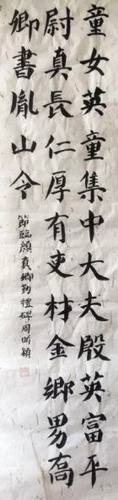 童女英童集中大夫殷英富平
尉真長仁厚有吏材金鄉男高
卿書胤山令
節臨顏真卿勤禮碑周昕穎